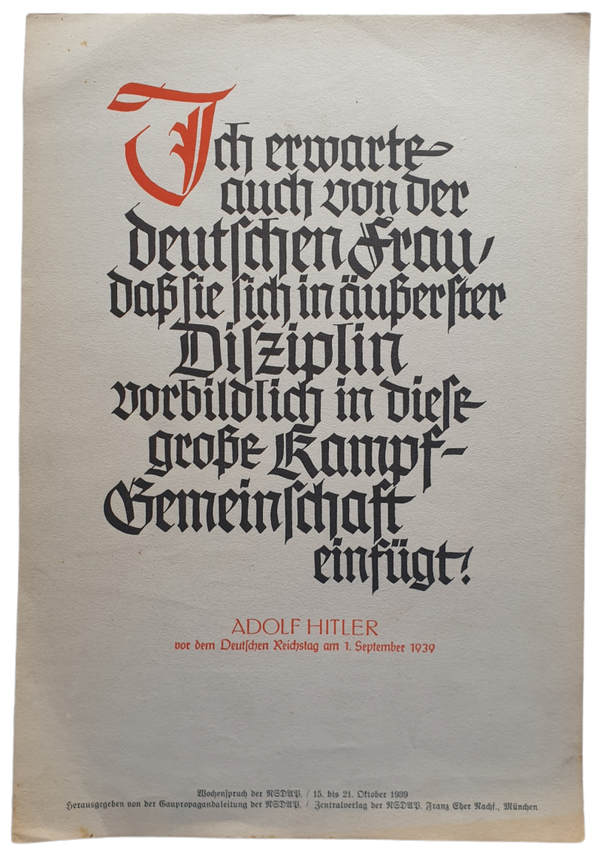 Ich erwarte
auch von der
deutschen Frau,
daß sie sich in äußerster
Disziplin
vorbildlich in diese
große Kampf-
Gemeinschaft
einfügt!
ADOLF HITLER
vor dem Deutschen Reichstag am 1. September 1939
Wochenspruch der NSDAP. / 15. bis 21. Oktober 1939
Herausgegeben von der Gaupropagandaleitung der NSDAP. / Zentralverlag der NSDAP. Franz Eher Nachf., München